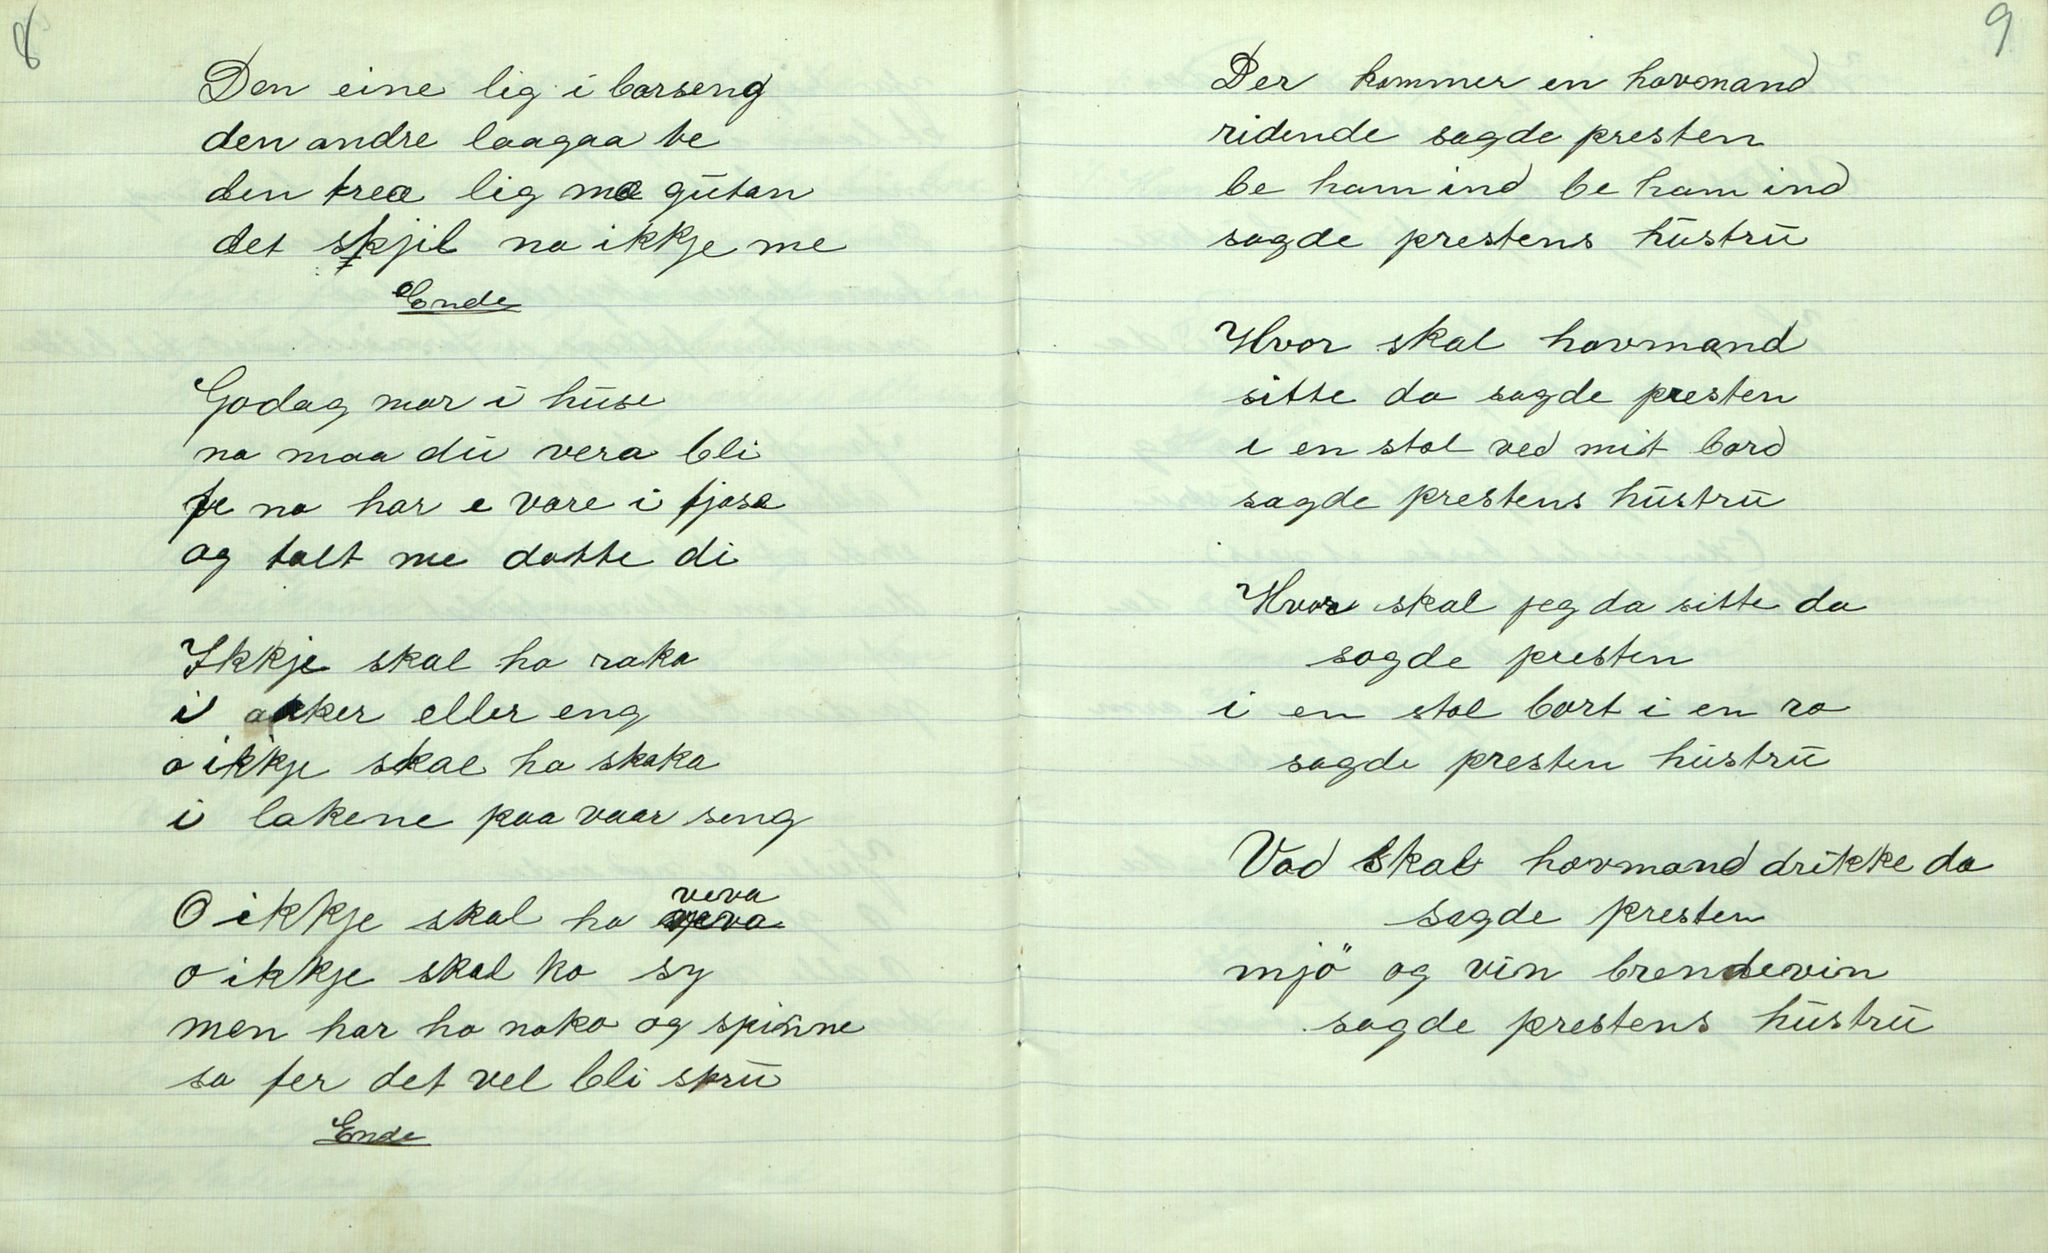 8
Den eine lig i barseng
den andre laagaa ve
den trea lig mæ gutan
det skjil na ikkje me
Ende
Godag mor i huse
no maa du vera bli
fe no har e vore i fjøsa
og talt me dotte di
Ikkje skal ho raka
i aaker eller eng
o ikkje skal ho skaka
i lakene paa vaar seng
O ikkje skal ho veva
o ikkje skal ho sy
men har ho noko og spinne
so fer det vel bli skru
Ende
9
Der kommer en hovmand
ridende sagde presten
be ham ind be ham ind
sagde prestens hustru
Hvor skal hovmand
sitte da sagde presten
i en stol ved mit bord
sagde prestens hustru
Hvor skal jeg da sitte da
sagde presten
i en stol bort i en ro
sagde presten hustru
Vad skal hovmand drikke da
sagde presten
mjö og vin brendevin
sagde prestens hustru